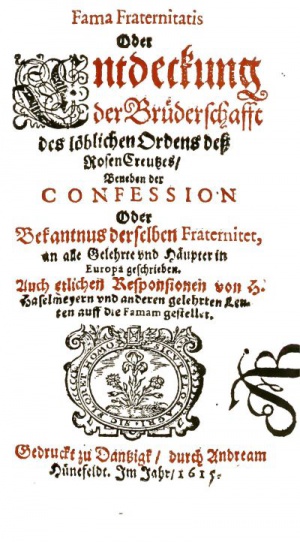 Fama Fraternitatis
Oder
Entdeckung
der Brüderschafft
des löblichen Ordens deß
RosenCreutzes/
Beneben der
CONFESSION
Oder
Bekantnus derselben Fraternitet,
an alle Gelehrte vnd Häupter in
Europa geschrieben.
Auch etlichen Responsionen von H.
Haselmeyern vnd anderen gelehrten Leu-
ten auff die Famam gestellet.
Gedruckt zu Dantzigk/ durch Andream
Hünefeldt. Im Jahr/ 1615.